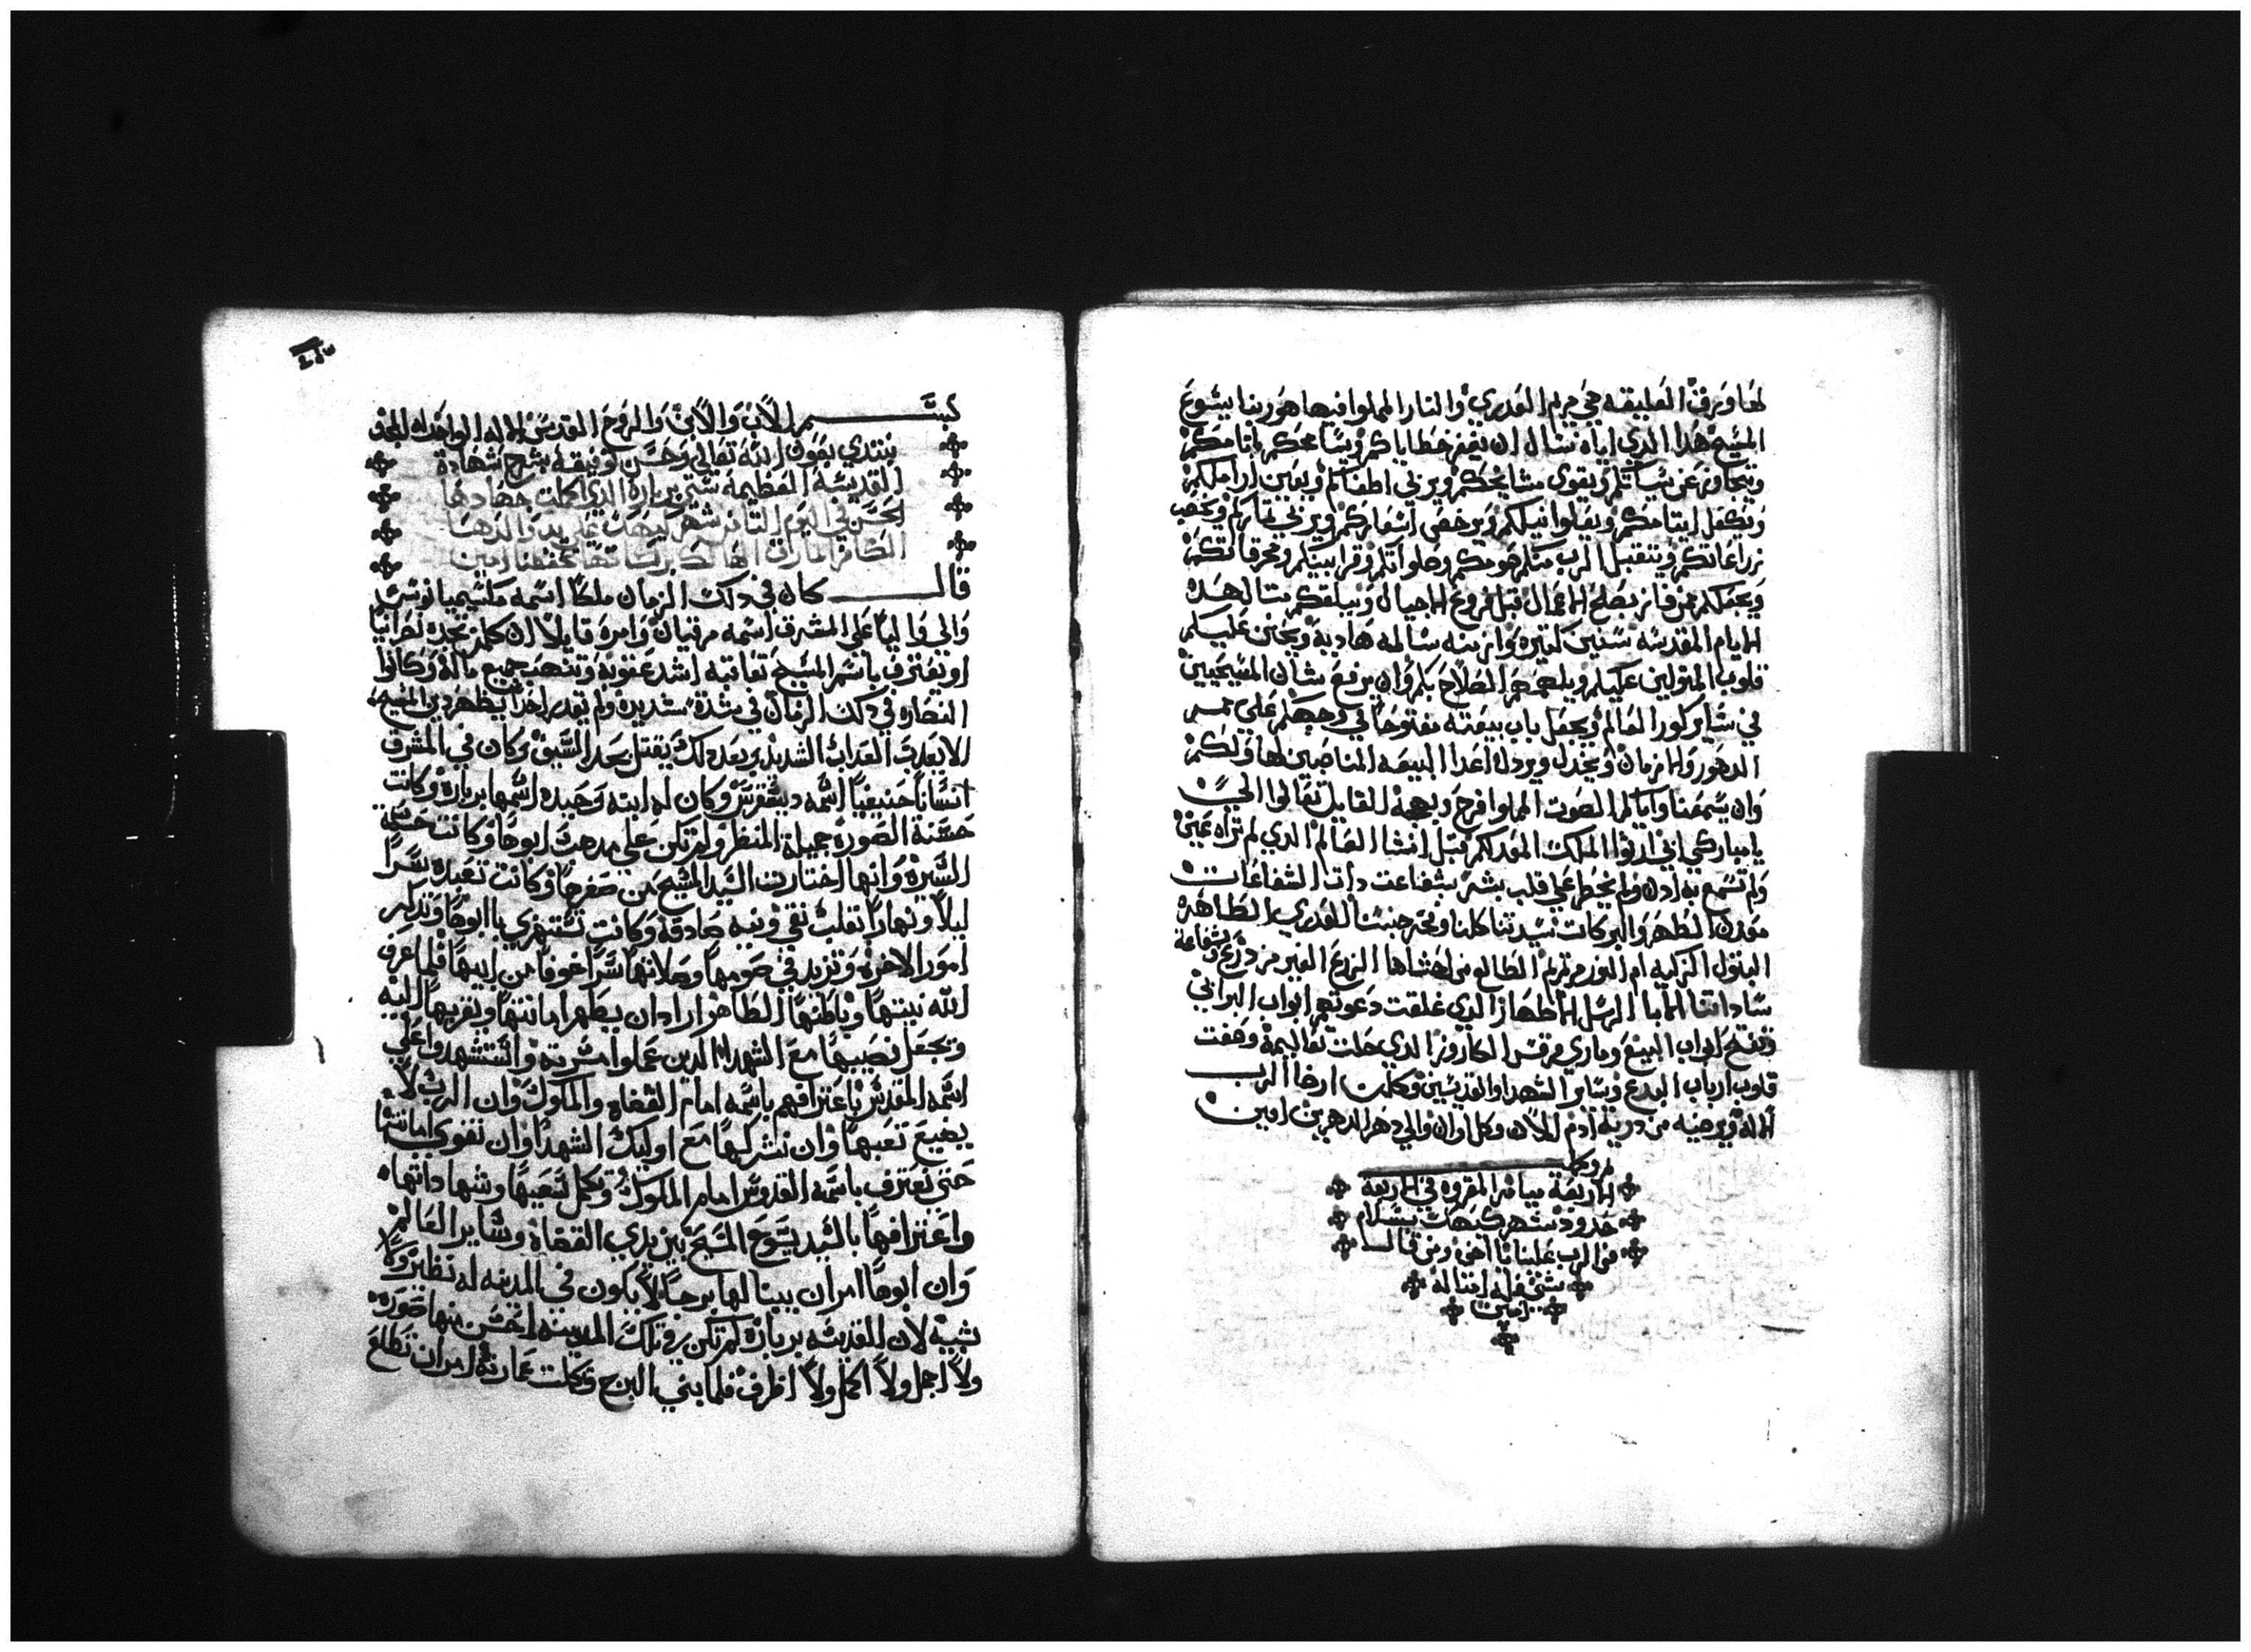 لها ويرف العليقه هي مريم العدري والنار المملوا فيها هو ربنا يسوع
المسيح هدا الدي اياه نسال ان يغفر خطاياكم ويسامحكم باتامكم
ويتجاوز عن سياتكم ويقوى مشايخكم ويربي اطفالكم ويعين اراملكم
ويكفل ايتامكم ويعلوا نيلكم ويرخص اسعاركم ويزكي تماركم ويخصب
زراعاتكم ويتقبل الرب منكم صومكم وصلواتكم وقرابينكم ومحرقاتكم
ويجعلكم ممن فاز بصلح الاعمال قبل فروغ الاجيال ويبلغكم متال هده
الايام المقدسه سنين كتيره وازمنه سالمه هاديه ويحنن عليكم
قلوب المتولين عليكم ويلهمهم الصلاح بكم وان يرفع شان المسيحيين
في ساير كور العالم ويجعل باب بيعته مفتوحا في وجهكم على ممر
الدهور والازمان ويخدل ويردل اعدا البيعه المناصبين لها ولكم
وان يسمعنا واياكم الصوت المملوا فرح وبهجه القايل تعالوا الي
يا مباركي ابي ارتوا الملك المعد لكم قبل انشا العالم الدي لم تراه عين
ولم تسمع به ادن ولم يخطر على قلب بشر بشفاعت دات الشفاعات
معدن الطهر والبركات سيدتنا كلنا وفخر جنسنا العدري الطاهره
البتول الزكيه ام النور مريم الطالع من احشاها الزرع الغير من درع وشفاعة
ساداتنا الابا الرسل الاطهار الدي غلقت دعوتهم ابواب البرابي
وفتح ابواب البيع وماري مرقس الكاروز الدي حلت تعاليمه وهفت
قلوب ارباب البدع وساير الشهدا والقديسين وكلمن ارضا الرب
الاله ويرضيه من درية ادم الان وكل اوان والي دهر الداهرين امين
الاربعة ميامر المقروه في الاربعة
حدود شهر كيهك بسلام
من الرب علينا يا اخي ومن قال
شي فله امتاله
امين
بسم الاب والابن والروح القدس الاله الواحد له المجد
نبتدي بعون الله تعالى وحسن توفيقه بشرح شهادة
القديسة العظيمة ستي برباره الدي اكملت جهادها
الحسن في اليوم التامن شهر كيهك على يد والدها
الكافر المارق الهالك بركاتها تحفظنا امين
قال كان في دلك الزمان ملكا اسمه مكسيميانوس
والي واليا على المشرق اسمه مرقيان وامره قايلا ان كلمن تجده نصرانيا
او يعترف باسم المسيح تعاقبه اشد عقوبة وتنهب جميع ماله وكانوا
النصاره في دلك الزمان في شدة شديده ولم يقدر احدا يظهر دين المسيح
الا يعدب العداب الشديد وبعد دلك يقتل بحد السيف وكان في المشرق
انسانا حنيفيا اسمه ديسقرس وكان له ابنه وحيده اسمها برباره وكانت
حسنة الصوره جميلة المنظر ولم تكن على مدهب ابوها وكانت حسنة
السيره وانها اختارت السيد المسيح من صغرها وكانت تعبده سرا
ليلا ونهارا بقلب نقي ونيه صادقه وكانت تستهزي بابوها وتدكر
امور الاخره وتزيد في صومها وصلاتها سرا خوفا من ابيها فلما عرف
الله نيتها وباطنها الطاهر اراد ان يظهر امانتها ويقربها اليه
ويجعل نصيبها مع الشهدا الدين عملوا مسرته واستشهدوا على
اسمه المقدس باعترافهم باسمه امام القضاه والملوك وان الرب لا
يضيع تعبها وان يشركها مع اوليك الشهدا وان تقوى امانتها
حتى تعترف باسمه القدوس امام الملوك وتكمل تعبها وشهاداتها
واعترافها بالسيد يسوع المسيح بين يدي القضاة وساير العالم
وان ابوها امر ان يبنا لها برجا لا يكون في المدينه له نظير ولا
شبيه لان القديسه برباره لم تكن في تلك المدينه احسن منها صوره
ولا اجمل ولا اكمل ولا اظرف فلما بني البرج وكملت عمارته امر ان تطلع